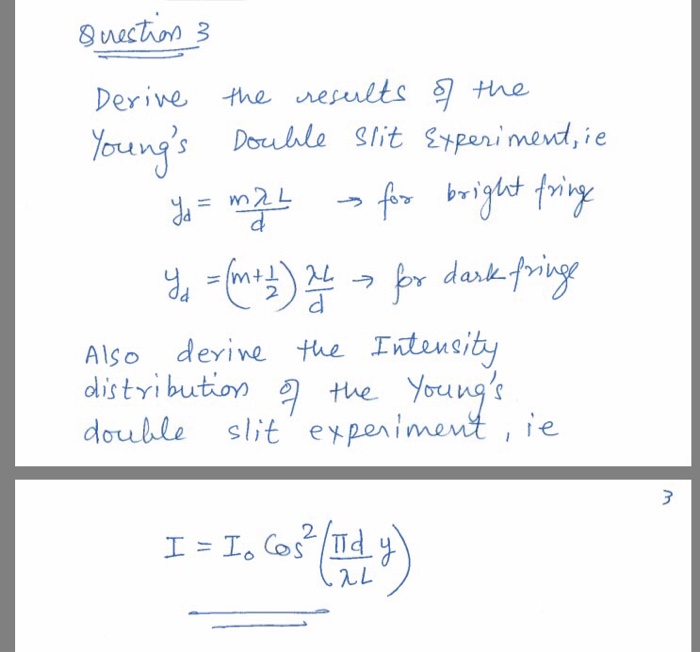 Question 3
Derive the results of the
Young's Double Slit Experiment, ie
y_d = mλL/d → for bright fringe
y_d = (m+1/2) λL/d → for dark fringe
Also derive the Intensity
distribution of the Young's
double slit experiment, ie
3
I = I₀ Cos²(πd/λL y)